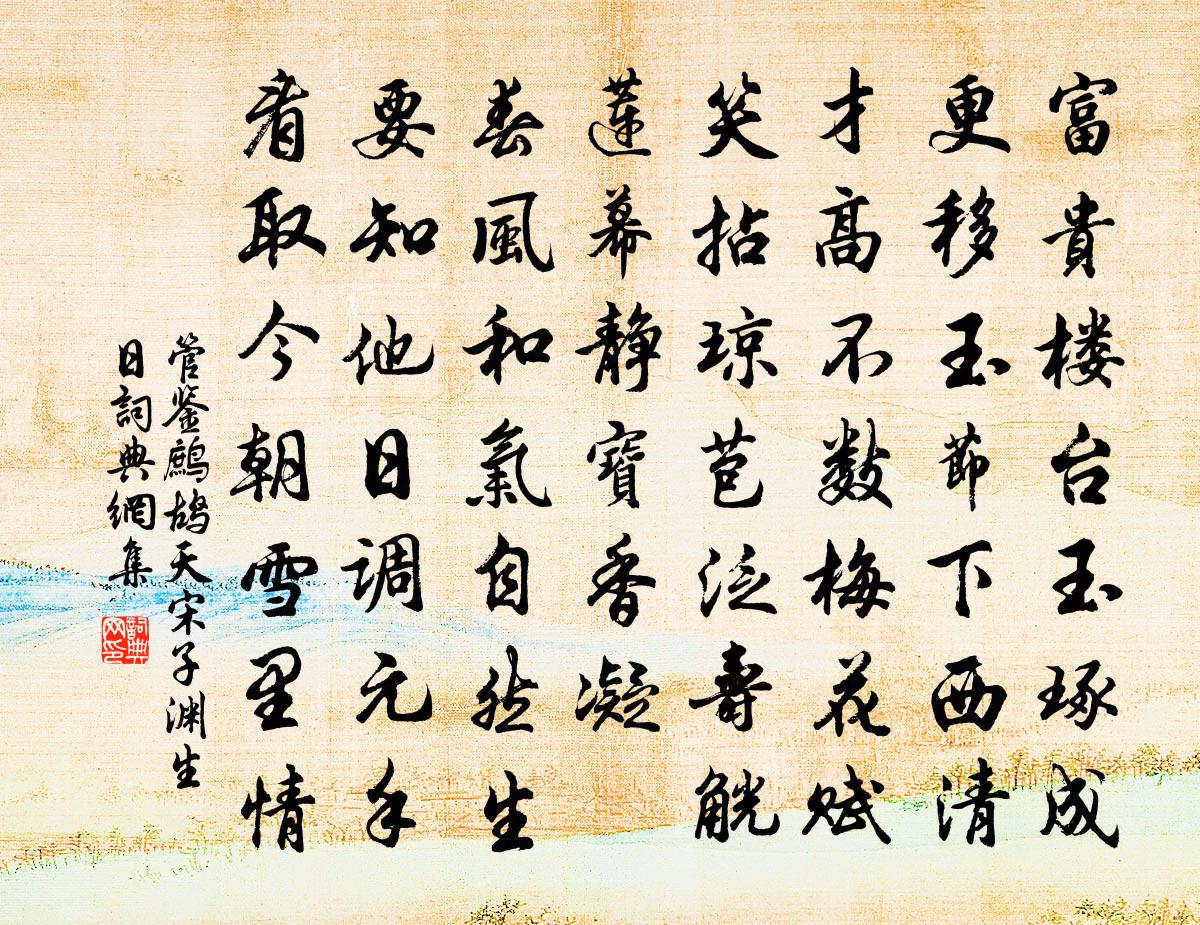 富貴楼台玉琢成
更移玉節下西清
才高不數梅花赋
笑拈琼苞泛壽觥
蓮幕靜寶香凝
春風和氣自然生
要知他日调元手
看取今朝雪里情
管鉴鷓鸪天宋子渊生
日詞典網集
詞典网印